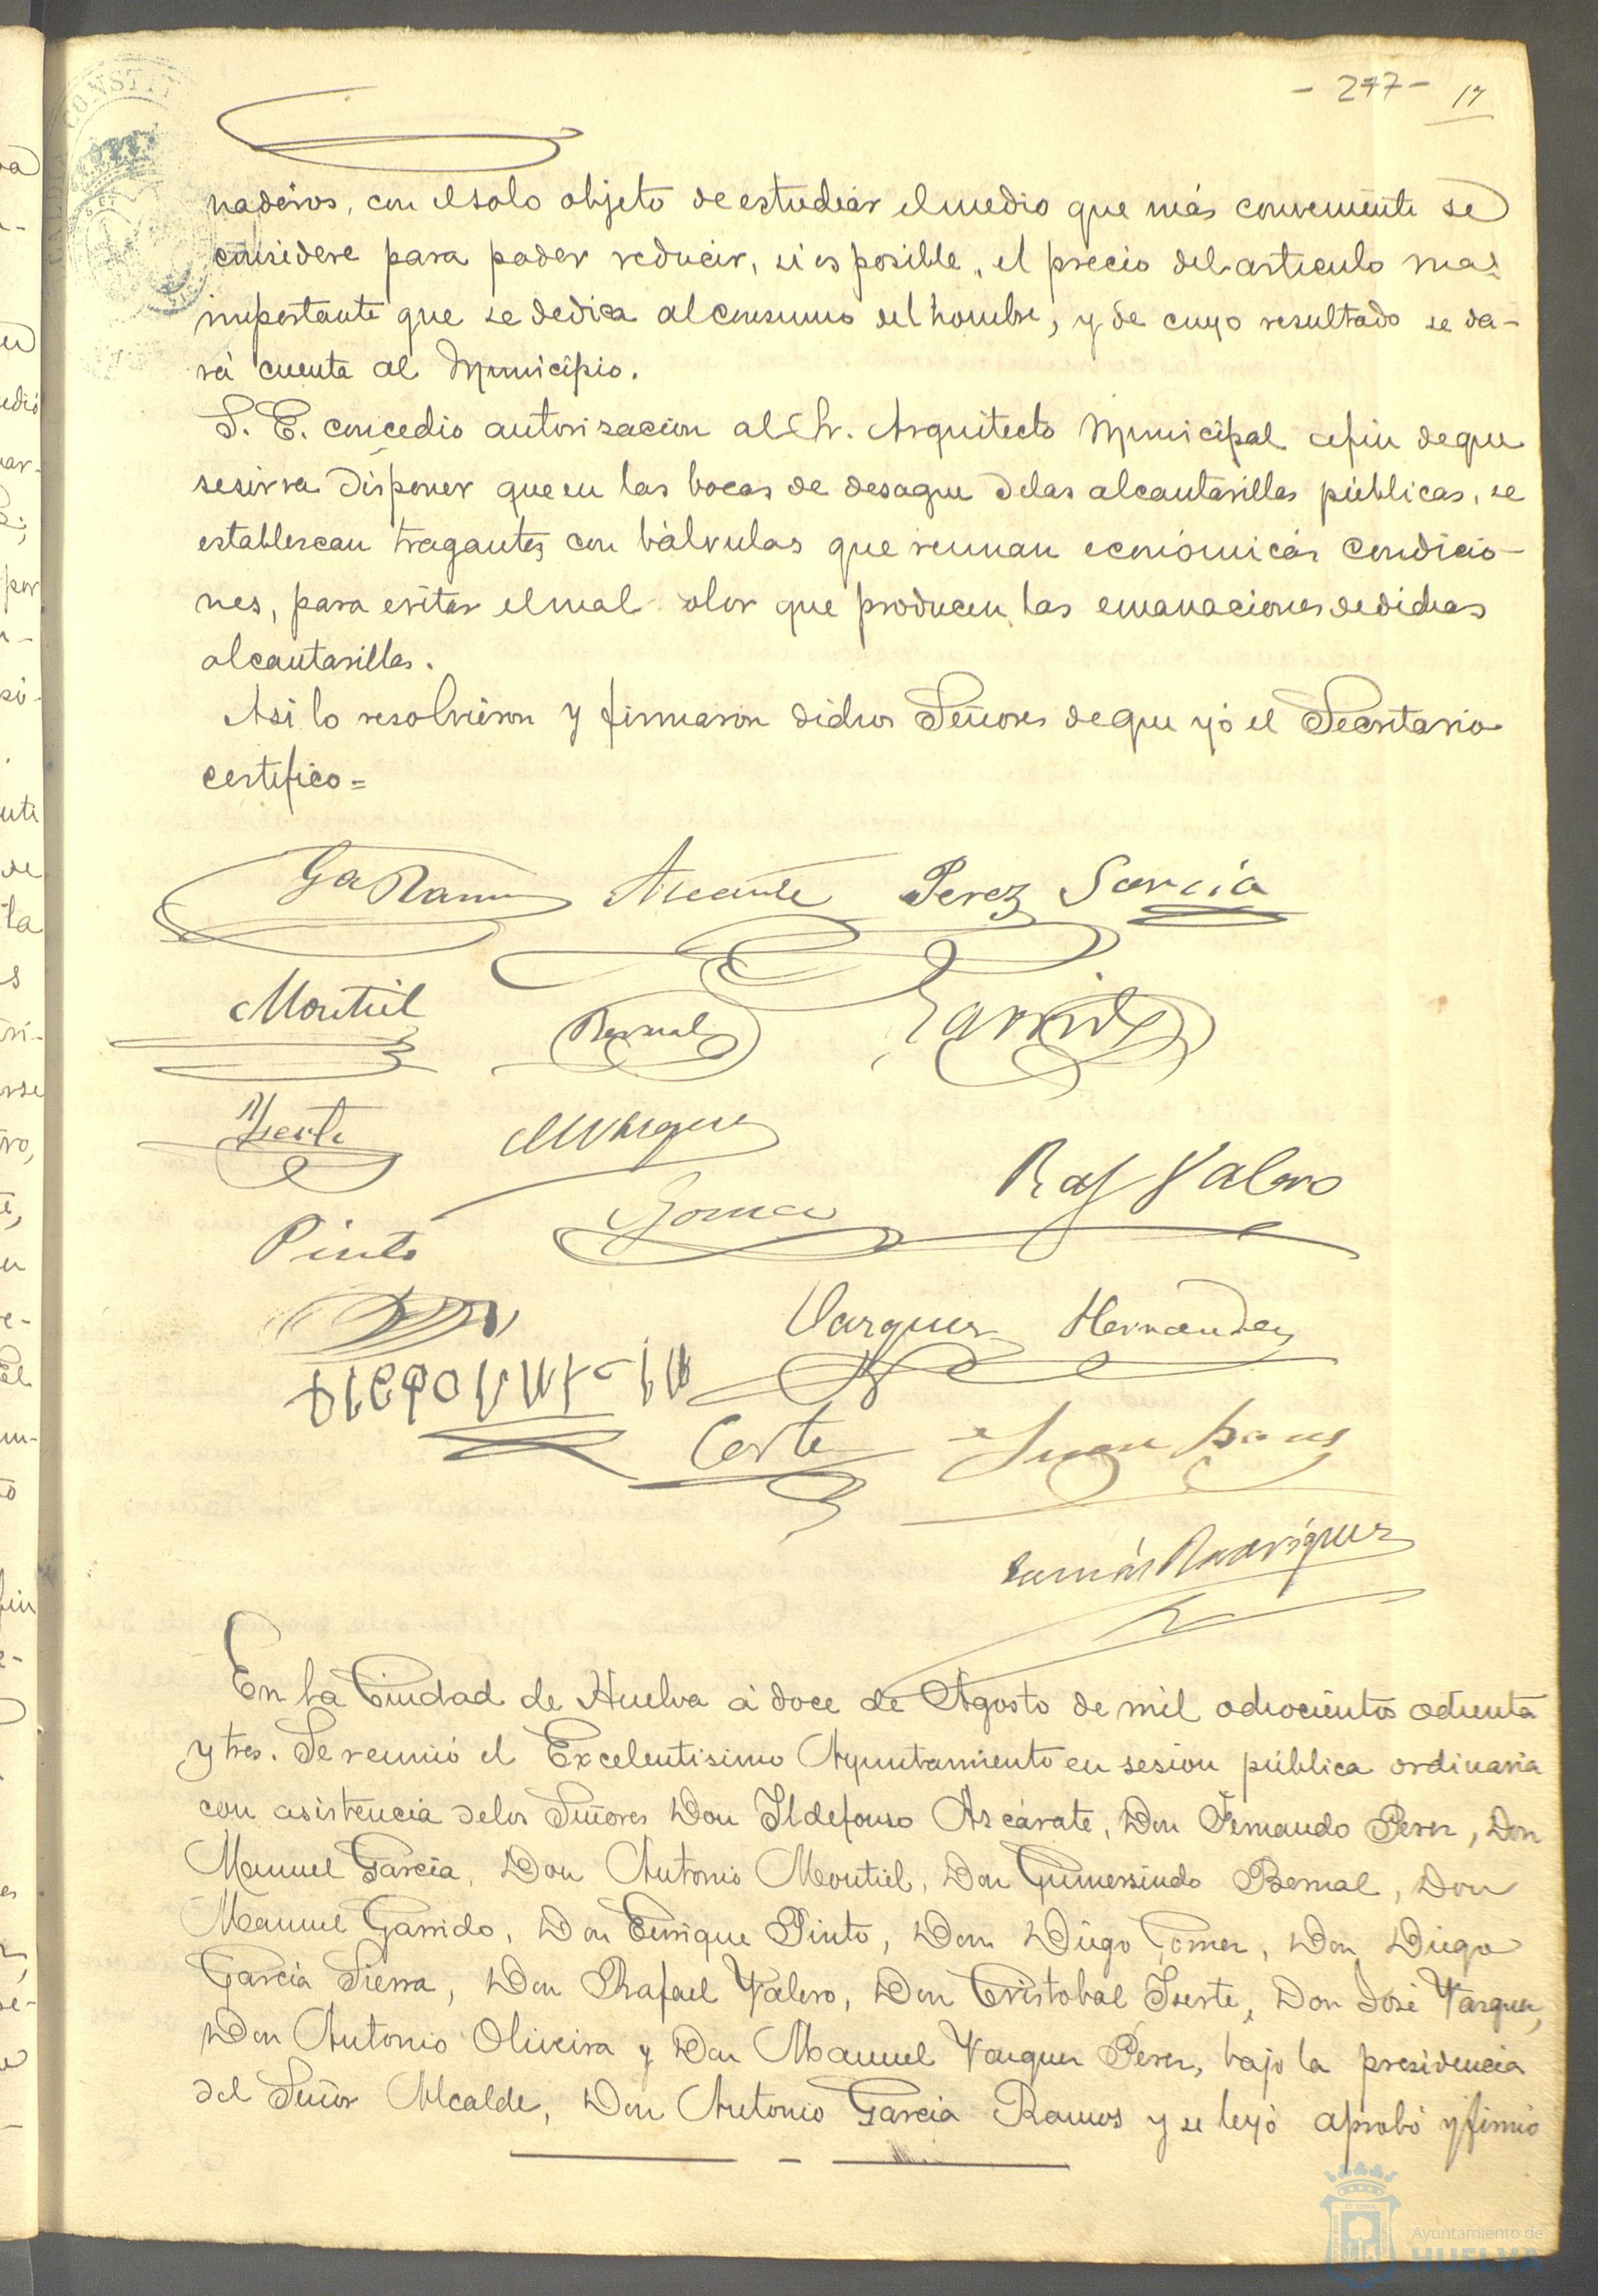 - 277 - 17
CONSTIT
naderos, con el solo objeto de estudiar el medio que más conveniente se
considere para poder reducir, si es posible, el precio del articulo mas
importante que se dedica al consumo del hombre, y de cuyo resultado se da-
rá cuenta al Municipio.
S. E. concedio autorizacion al Sr. Arquitecto Municipal afin de que
se sirva disponer que en las bocas de desague de las alcantarillas públicas, se
establescan tragantes con bálvulas que reunan económicas condicio-
nes, para evitar el mal olor que producen las emanaciones de dichas
alcantarillas.
Asi lo resolvieron y firmaron dichos Señores de que yó el Secretario
certifico=
Ga Ramos Ascarate Perez Garcia
Montiel Bernal Garrido
Yserte MVazquez
Raf Valero
Pinto Gomez
Vazquez Hernandez
Corte Juan
Tomás Rodriguez
En la Ciudad de Huelva á doce de Agosto de mil ochocientos ochenta
y tres. Se reunió el Excelentisimo Ayuntamiento en sesion pública ordinaria
con asistencia de los Señores Don Ildefonso Ascárate, Don Fernando Perez, Don
Manuel Garcia, Don Antonio Montiel, Don Gumersindo Bernal, Don
Manuel Garrido, Don Enrique Pinto, Don Diego Gomez, Don Diego
Garcia Sierra, Don Rafael Valero, Don Cristobal Iserte, Don José Vazquez,
Don Antonio Oliveira y Don Manuel Vazquez Perez, bajo la presidencia
del Señor Alcalde, Don Antonio Garcia Ramos y se leyó aprobó y firmó
Ayuntamiento de
HUELVA